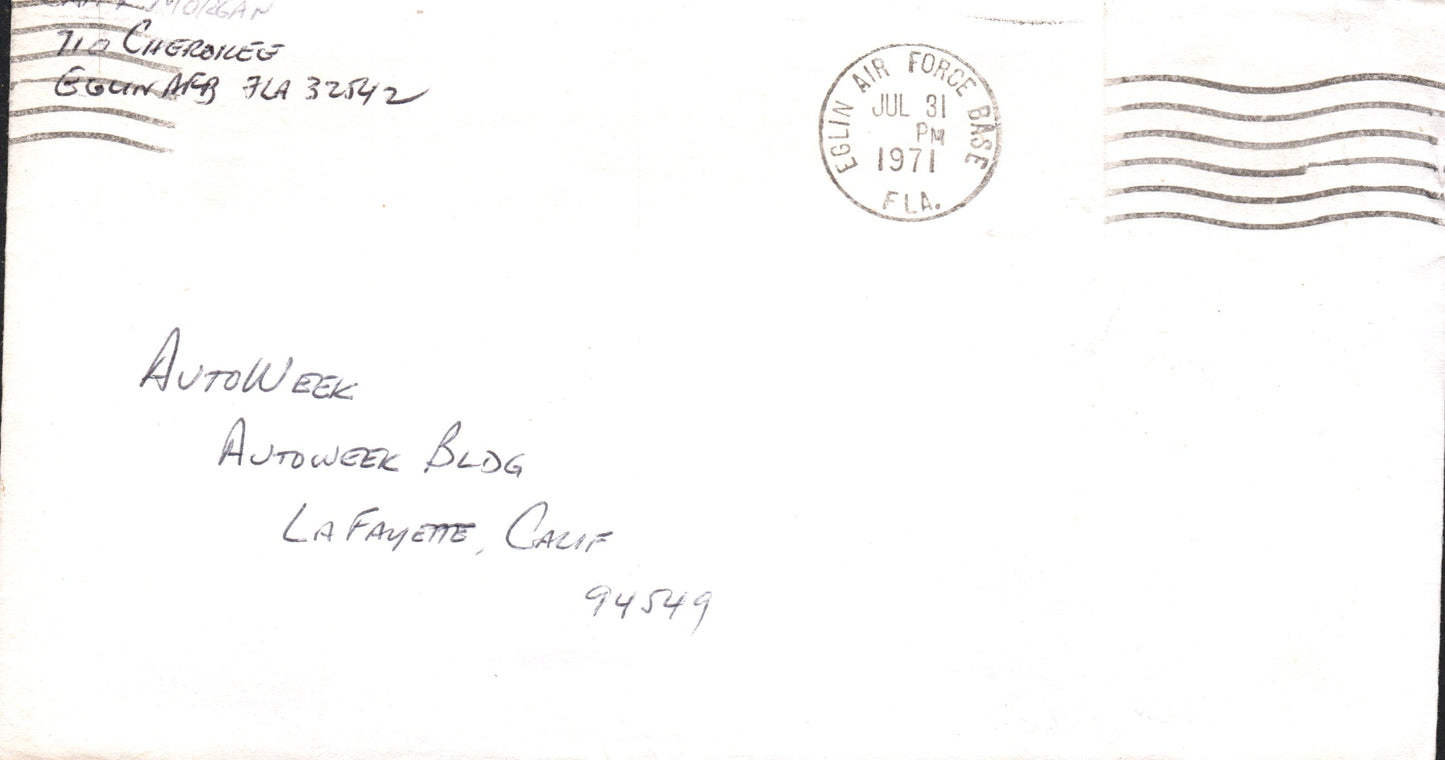 MORGAN
710 CHEROKEE
EGLIN AFB FLA 32542
EGLIN AIR FORCE BASE
JUL 31
PM
1971
FLA.
AUTOWEEK
AUTOWEEK BLDG
LAFAYETTE, CALIF
94549